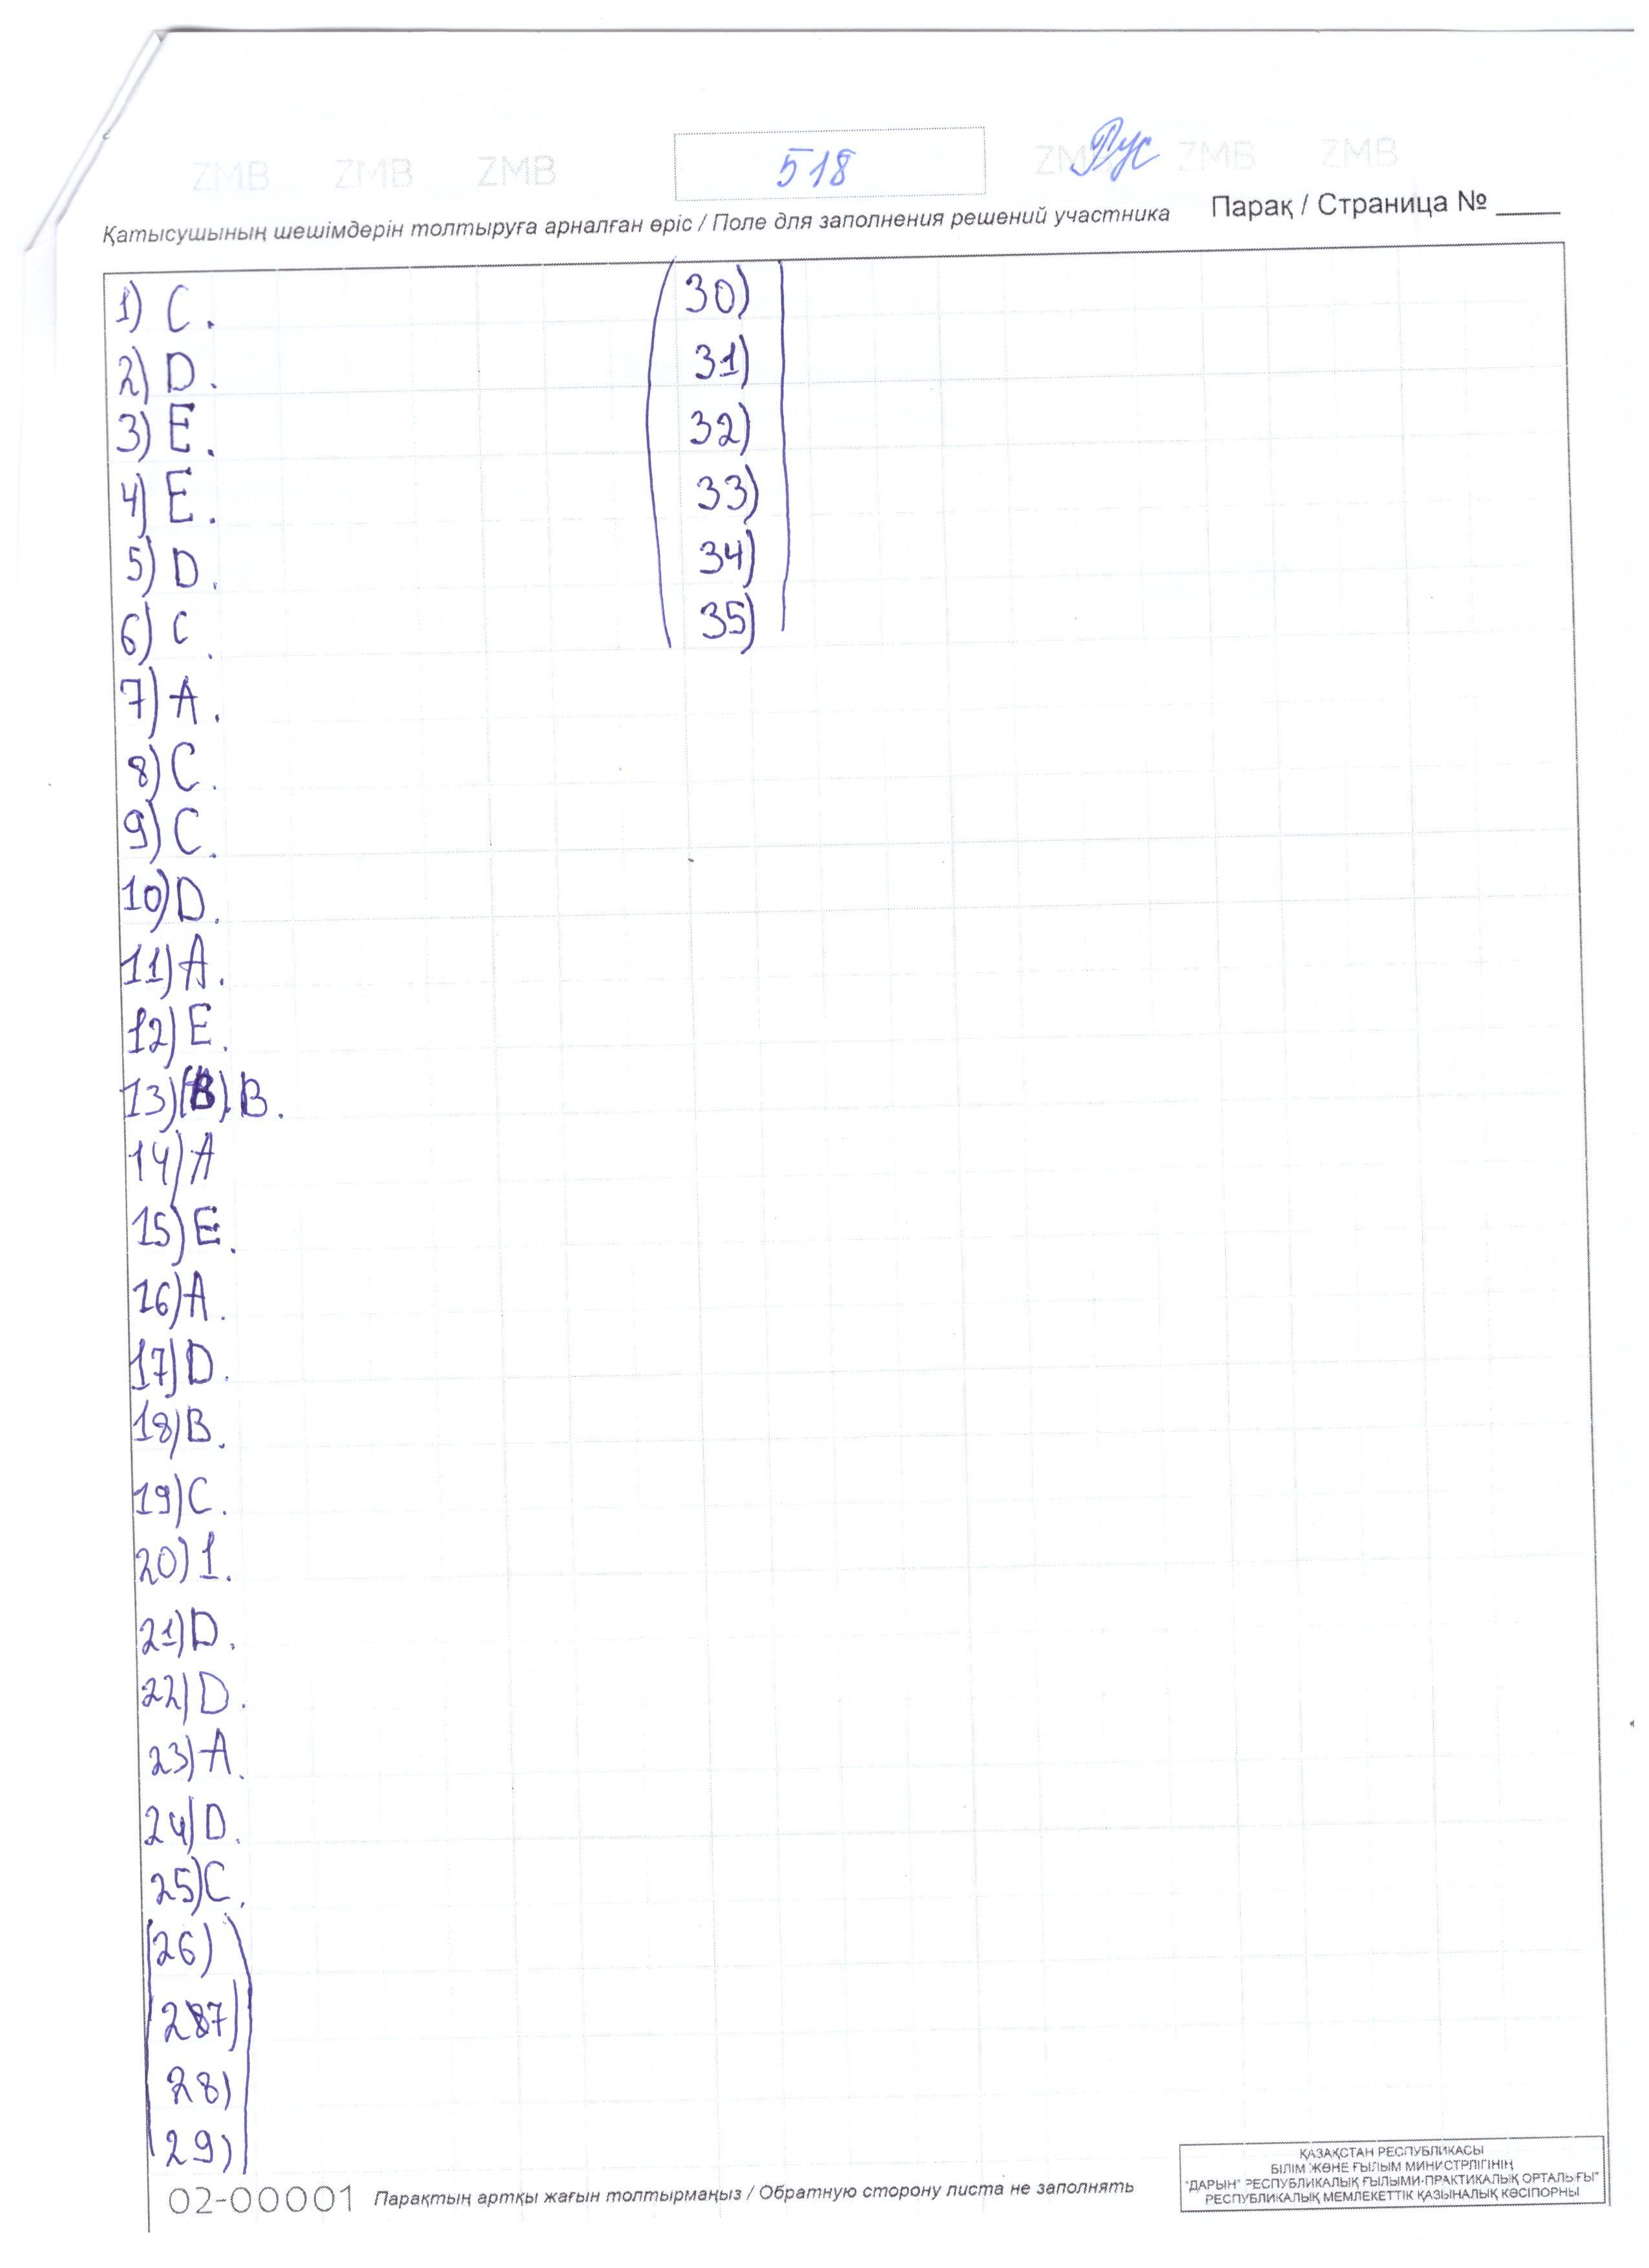 ZMB ZMB ZMB 518 ZMB Рус ZMB ZMB
Қатысушының шешімдерін толтыруға арналған өріс / Поле для заполнения решений участника Парақ / Страница № ____
1) C.
2) D.
3) E.
4) E.
5) D.
6) C.
7) A.
8) C.
9) C.
10) D.
11) A.
12) E.
13) (B). B.
14) A
15) E.
16) A.
17) D.
18) B.
19) C.
20) 1.
21) D.
22) D.
23) A.
24) D.
25) C.
(26)
27)
28)
29))
(30)
31)
32)
33)
34)
35))
02-00001 Парақтың артқы жағын толтырмаңыз / Обратную сторону листа не заполнять
ҚАЗАҚСТАН РЕСПУБЛИКАСЫ
БІЛІМ ЖӘНЕ ҒЫЛЫМ МИНИСТРЛІГІНІҢ
"ДАРЫН" РЕСПУБЛИКАЛЫҚ ҒЫЛЫМИ-ПРАКТИКАЛЫҚ ОРТАЛЫҒЫ"
РЕСПУБЛИКАЛЫҚ МЕМЛЕКЕТТІК ҚАЗЫНАЛЫҚ КӘСІПОРНЫ